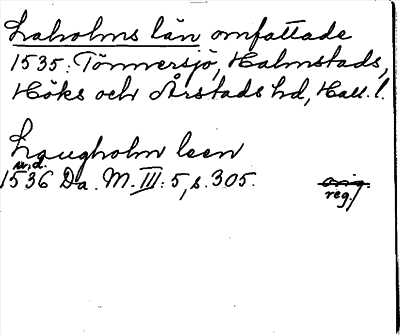 Laholms län omfattade
1535: Tönnersjö, Halmstads,
Höks och Årstads hd, Hall. l.
Laugholm leen
u.d.
1536 Da. M. III: 5, s. 305. orig.
reg.